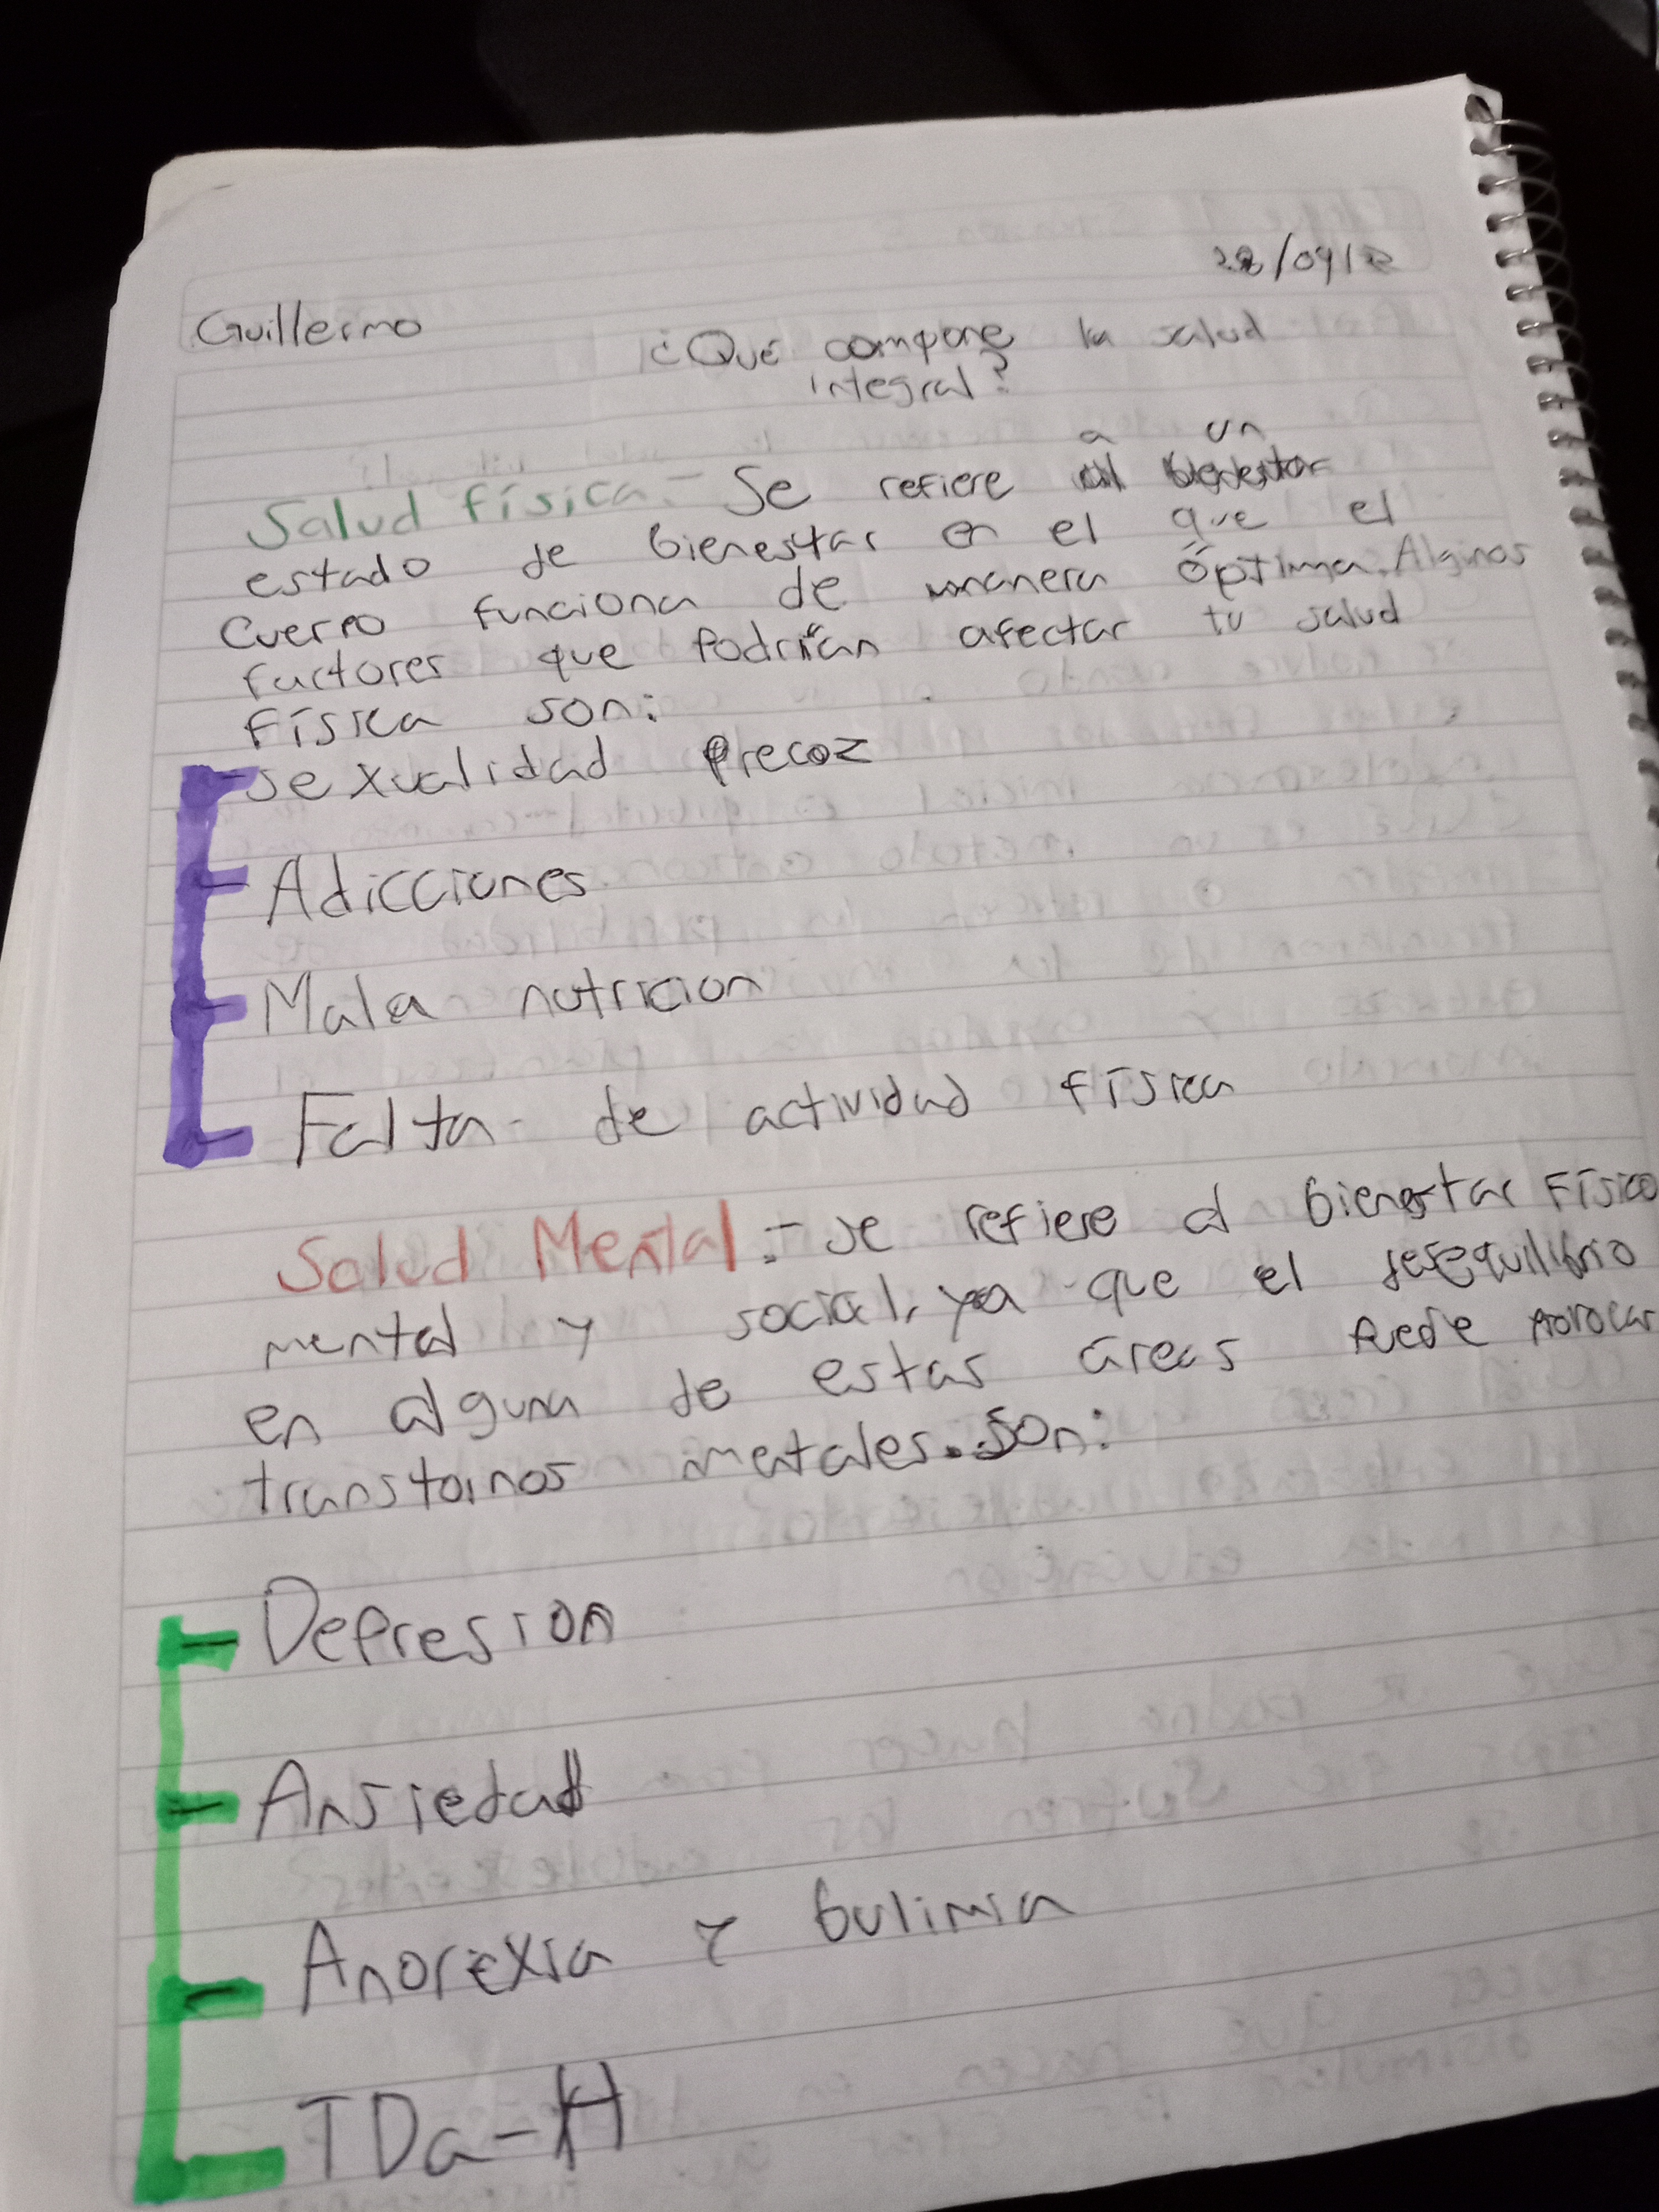 Guillermo
¿Qué compone la salud
integral?
Salud física:- Se refiere a un
estado de bienestar en el que el
cuerpo funciona de manera óptima. Alginos
factores que podrían afectar tu salud
física son:
sexualidad precoz
Adicciones
Mala nutricion
Falta de actividad física
Salud Mental:- se refiere al bienestar físico
mental y social, ya que el desequilibrio
en alguna de estas áreas puede provocar
transtornos metales. Son:
Depresion
Ansiedad
Anorexia y bulimia
TDa-H